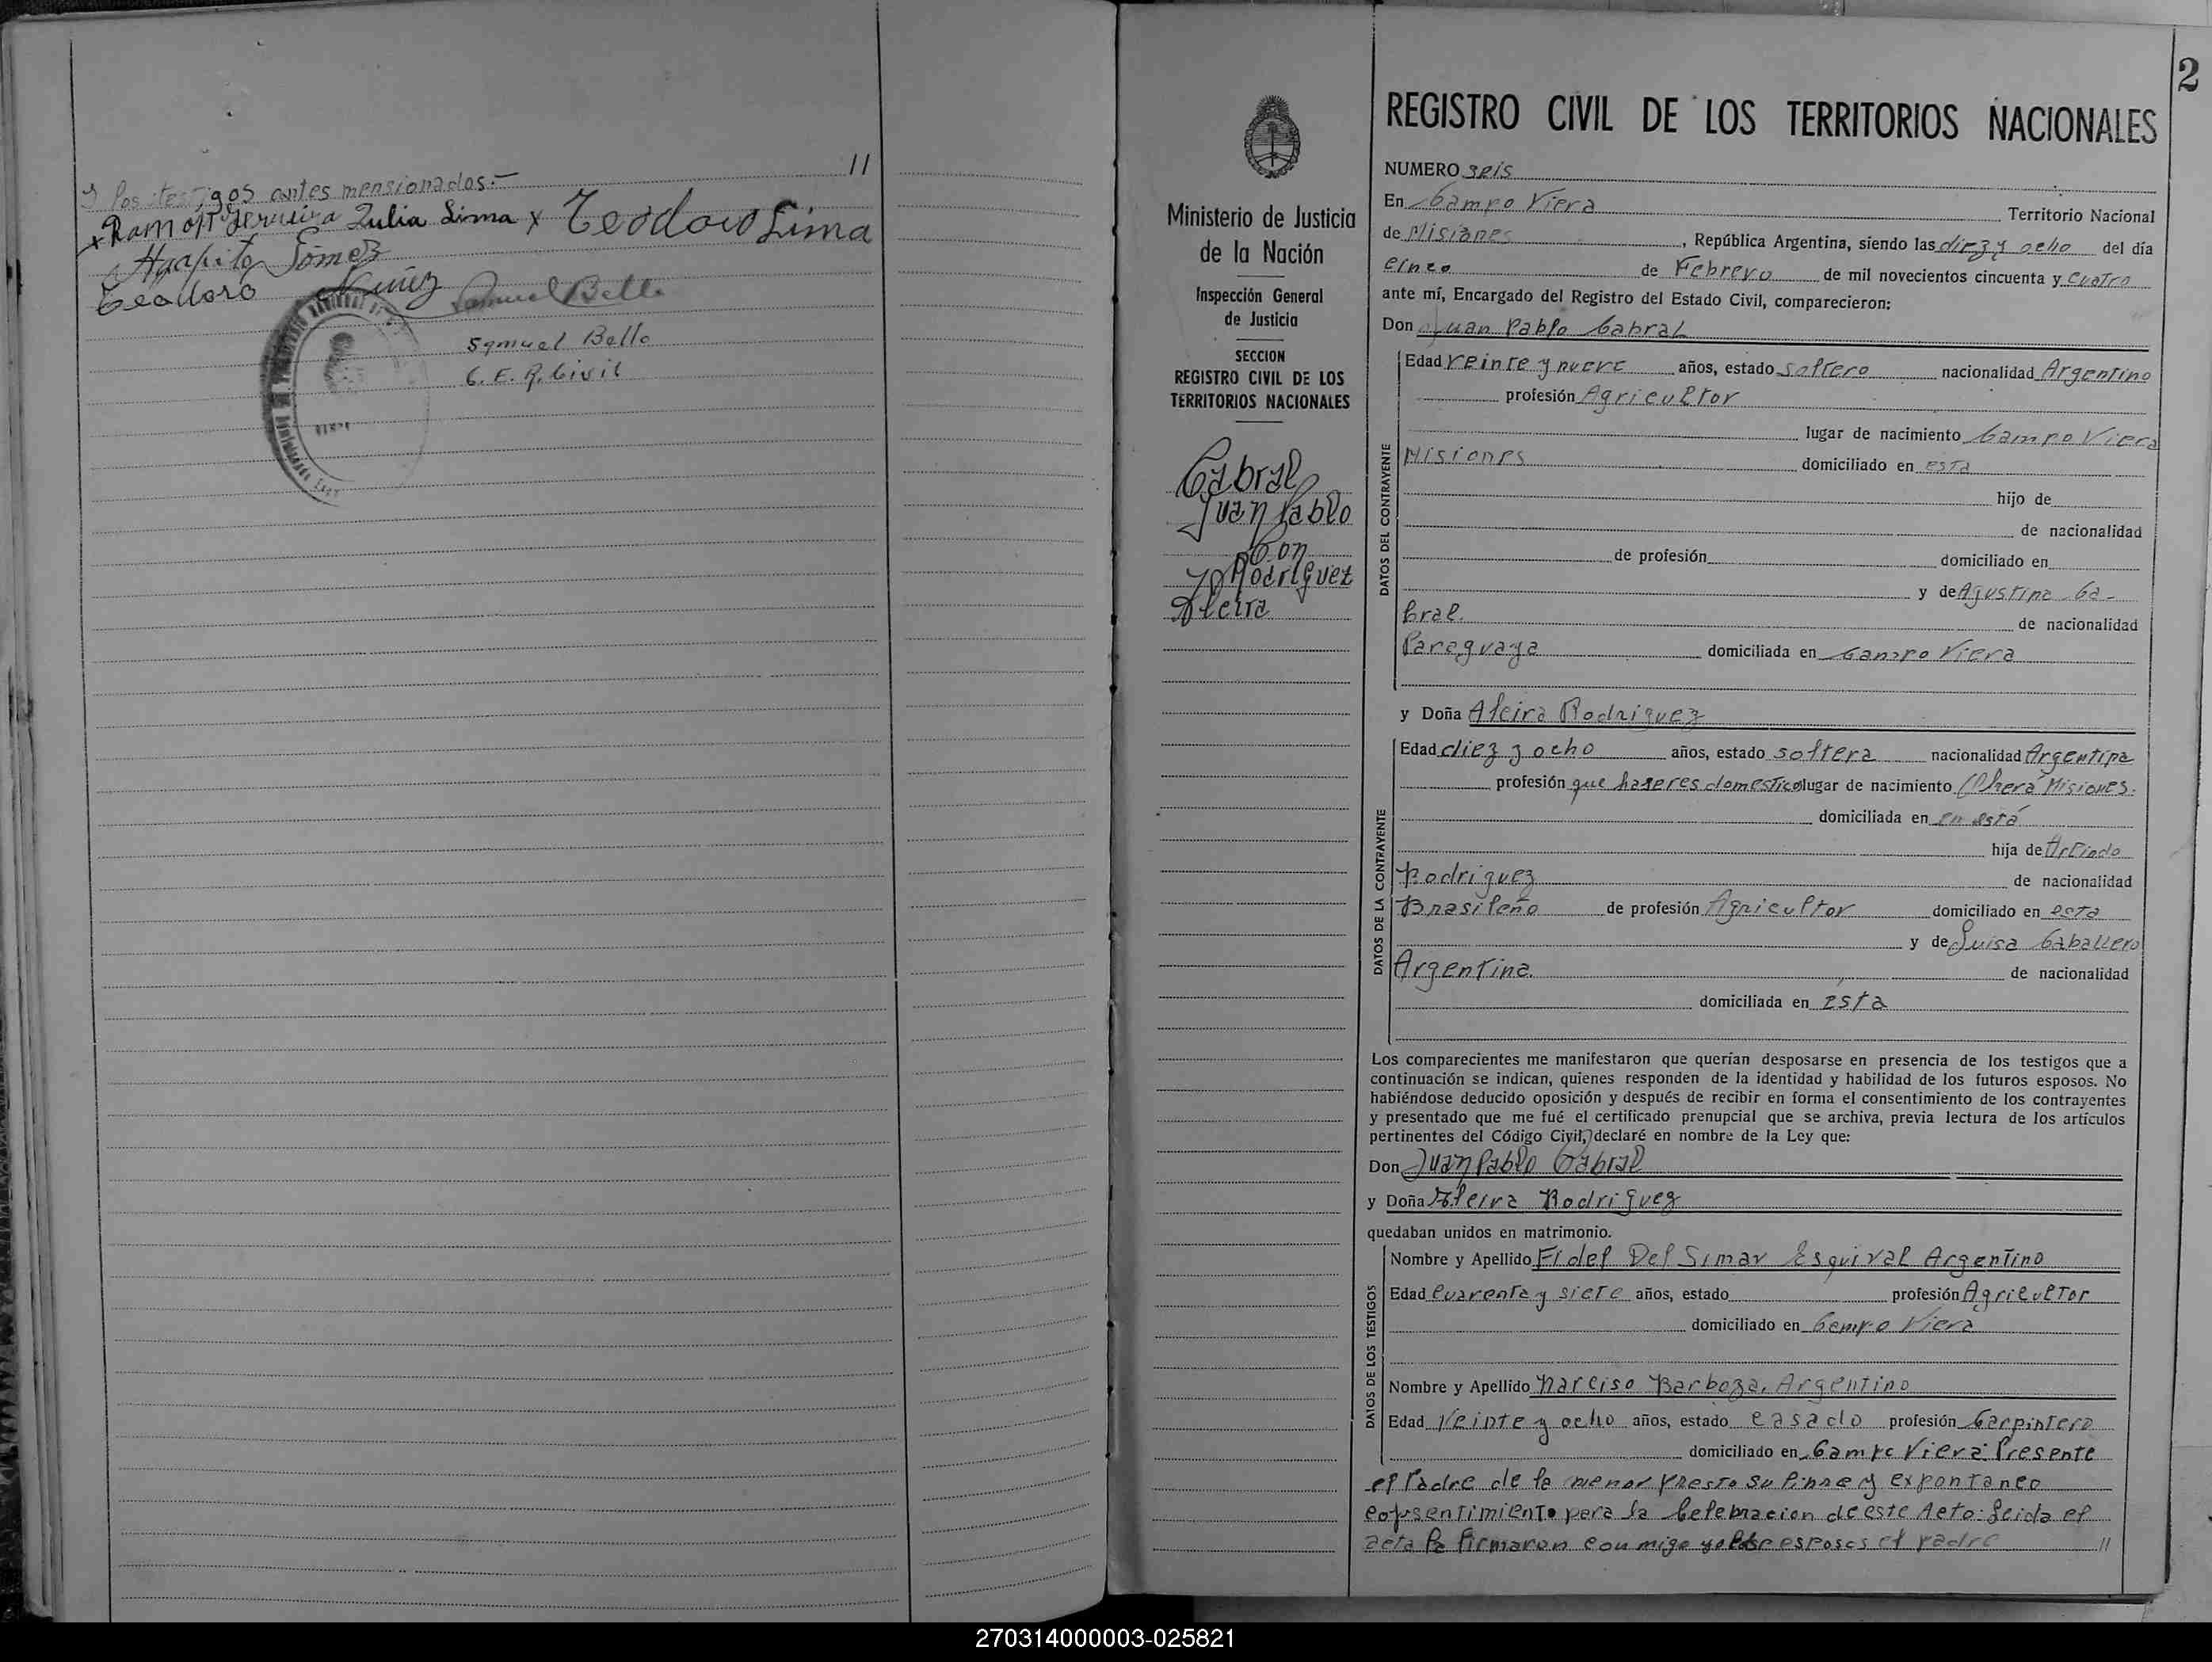 11
Y los testigos antes mensionados.-
x Ramón Ferreira Julia Lima x Teodoro Lima
Agapito Gómez
Teodoro Nuñez Samuel Bello
Samuel Bello
E. R. Civil
2
Ministerio de Justicia
de la Nación
Inspección General
de Justicia
SECCION
REGISTRO CIVIL DE LOS
TERRITORIOS NACIONALES
Cabral
Juan Pablo
Con
Rodriguez
Alcira
REGISTRO CIVIL DE LOS TERRITORIOS NACIONALES
NUMERO seis
En Campo Viera Territorio Nacional
de Misiones, República Argentina, siendo las diez y ocho del día
cinco de Febrero de mil novecientos cincuenta y cuatro
ante mí, Encargado del Registro del Estado Civil, comparecieron:
Don Juan Pablo Cabral
DATOS DEL CONTRAYENTE
Edad veinte y nueve años, estado soltero nacionalidad Argentino
profesión Agricultor
lugar de nacimiento Campo Viera
Misiones domiciliado en esta
hijo de
de nacionalidad
de profesión domiciliado en
y de Agustina Ca-
bral. de nacionalidad
Paraguaya domiciliada en Campo Viera
y Doña Alcira Rodriguez
DATOS DE LA CONTRAYENTE
Edad diez y ocho años, estado soltera nacionalidad Argentina
profesión que haseres domestico lugar de nacimiento Oberá Misiones.
domiciliada en en está
hija de Arlindo
Rodriguez de nacionalidad
Brasileño de profesión Agricultor domiciliado en esta
y de Luisa Caballero
Argentina. de nacionalidad
domiciliada en esta
Los comparecientes me manifestaron que querían desposarse en presencia de los testigos que a
continuación se indican, quienes responden de la identidad y habilidad de los futuros esposos. No
habiéndose deducido oposición y después de recibir en forma el consentimiento de los contrayentes
y presentado que me fué el certificado prenupcial que se archiva, previa lectura de los artículos
pertinentes del Código Civil, declaré en nombre de la Ley que:
Don Juan Pablo Cabral
y Doña Alcira Rodriguez
quedaban unidos en matrimonio.
DATOS DE LOS TESTIGOS
Nombre y Apellido Fidel Del Simar Esquival Argentino
Edad cuarenta y siete años, estado profesión Agricultor
domiciliado en Campo Viera
Nombre y Apellido Narciso Barboza, Argentino
Edad Veinte y ocho años, estado casado profesión Carpintero
domiciliado en Campo Viera: Presente
el Padre de la menor presto su libre y expontaneo
consentimiento para la Celebracion de este Acto: Leida el
acta la firmaron con migo esposos el padre 11
270314000003-025821